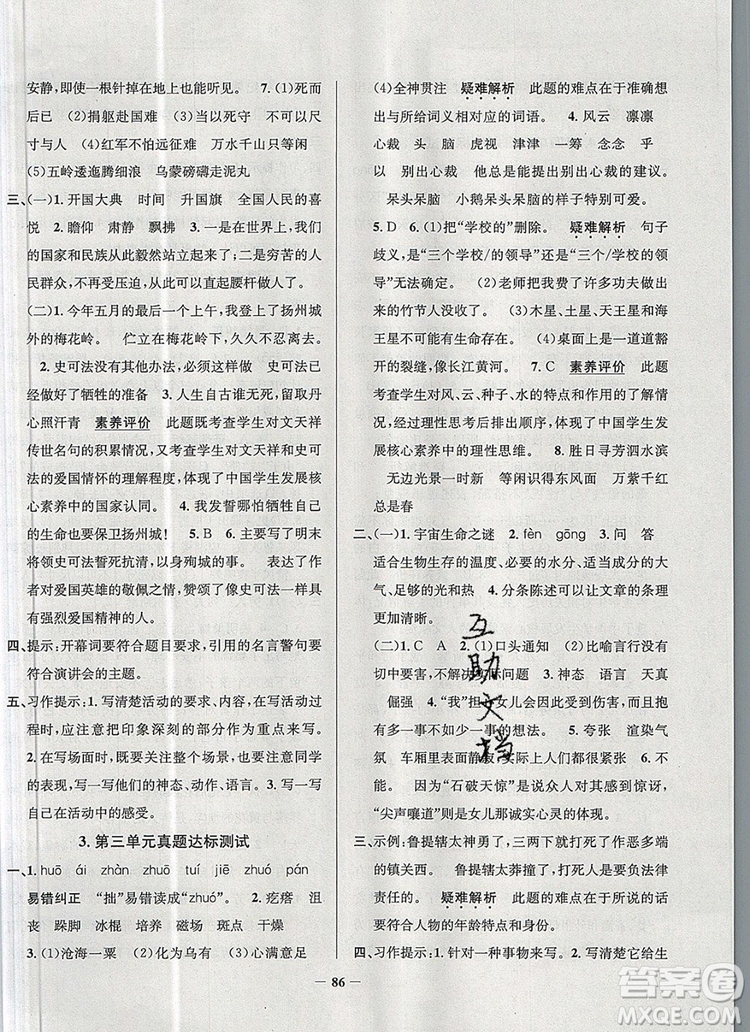 安静,即使一根针掉在地上也能听见。 7.(1)死而
后已 (2)捐躯赴国难 (3)当以死守 不可以尺
寸与人 (4)红军不怕远征难 万水千山只等闲
(5)五岭逶迤腾细浪 乌蒙磅礴走泥丸
三、(一)1.开国大典 时间 升国旗 全国人民的喜
悦 2.瞻仰 肃静 飘拂 3.一是在世界上,我们
的国家和民族从此毅然站立起来;二是穷苦的人
民群众,不再受压迫,从此能够直起腰杆做人。
(二)1.今年五月的最后一个上午,我登上了扬州城
外的梅花岭。 伫立在梅花岭中,久久不忍离去。
2.史可法没有其他办法,必须这样做 史可法
做好了牺牲的准备 3.人生自古谁无死,留取丹
心照汗青 素养评价 此题既考查学生对文天祥
传世名句的积累情况,又考查学生对文中史可法
的爱国情怀的理解程度,体现了中国学生发展核
心素养中的国家认同。 4.我发誓哪怕牺牲自己
的生命也要保卫扬州城! 5.B 6.主要写了明末
将领史可法誓死抗清,以身殉城的事。 表达了作
者对爱国英雄的敬佩之情,赞颂了像史可法一样
具有强烈爱国精神的人。
四、提示:开幕词要符合题目要求,引用的名言警句要
符合演讲会的主题。
五、习作提示:1.写清楚活动的要求、内容,在写活动过
程时,应注意把印象深刻的部分作为重点来写。
2.在写场面时,既要关注整个场景,也要注意同学
的表现,写一写他们的神态、动作、语言。 3.写写
自己在活动中的感受。
3.第三单元真题达标测试
一、1.huō ái zhàn zhuó tuí jiē zhuó pán
易错纠正 “拙”易错读成“zhuó”。 2.疙瘩 沮
丧 跺脚 冰棍 培养 磁场 斑点 干燥
3.(1)沧海一粟 (2)化为乌有 (3)心满意足
(4)全神贯注 疑难解析 此题的难点在于准确想
出与所给词义相对应的词语。 4.风云 凛凛
心裁 头 脑 虎视 津津 一筹 念念 乎
以 别出心裁 他总是能提出别出心裁的建议。
呆头呆脑 小鹅呆头呆脑的样子十分可爱。
5.D 6.(1)把“学校的”删除。 疑难解析 句子
歧义,是“三个学校/的领导”还是“三个/学校的领
导”无法确定。 (2)老师把贾了许多功夫做出
来的竹节人没收了。 (3)木星、土星、天王星和海
王星不可能有生命存在。 (4)桌面上是一道道豁
开的裂缝,像长江黄河。 7.C 素养评价 此题
考查学生对风、云、种子、水的特点和作用的了解
情况,并经过理性思考排出顺序,体现了中国学生发
展核心素养中的理性思维。 8.胜日寻芳泗水滨
无边光景一时新 等闲识得东风面 万紫千红
总是春
二、(一)1.宇宙生命之谜 2.fèn gōng 3.问 答
适合生物生存的温度、必要的水分、适当成分的大
气、足够的光和热 4.分条陈述可以让文章的条理
更加清晰。
(二)1.C A 2.(1)口头通知 (2)比喻言行没有
切中要害,不解决实际问题 3.神态 语言 天真
倔强 4.“我”担心女儿会因此受到伤害,而且
抱有多一事不如少一事的想法。 5.夸张 渲染气
氛 车厢里面静寂下来 人们都很紧张和惊讶。
6.不能。因为“石破天惊”是说众人对此感到惊讶,
“尖声嚷道”则是女儿那诚实心灵的体现。
三、示例:鲁提辖太神勇了,三两下就打死了作恶多端
的镇关西。 鲁提辖太莽撞了,打死人是要负法律
责任的。 疑难解析 此题的难点在于所说的话
要符合人物的年龄特点和身份。
四、习作提示:1.针对一种事物来写。 2.写清楚它给生
— 86 —
互助文档
答案圈
MXQE.COM